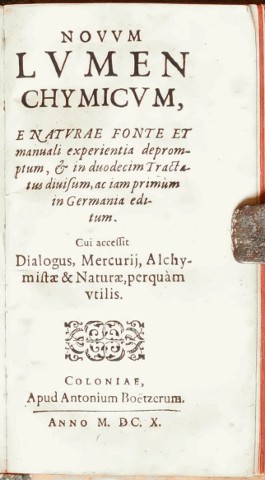 NOVVM
LVMEN
CHYMICVM,
E NATVRAE FONTE ET
manuali experientia deprom-
ptum, & in duodecim Tracta-
tus diuisum, ac iam primùm
in Germania edi-
tum.
Cui accessit
Dialogus, Mercurij, Alchy-
mistæ & Naturæ, perquàm
vtilis.
COLONIAE,
Apud Antonium Boëtzerum.
ANNO M. DC. X.